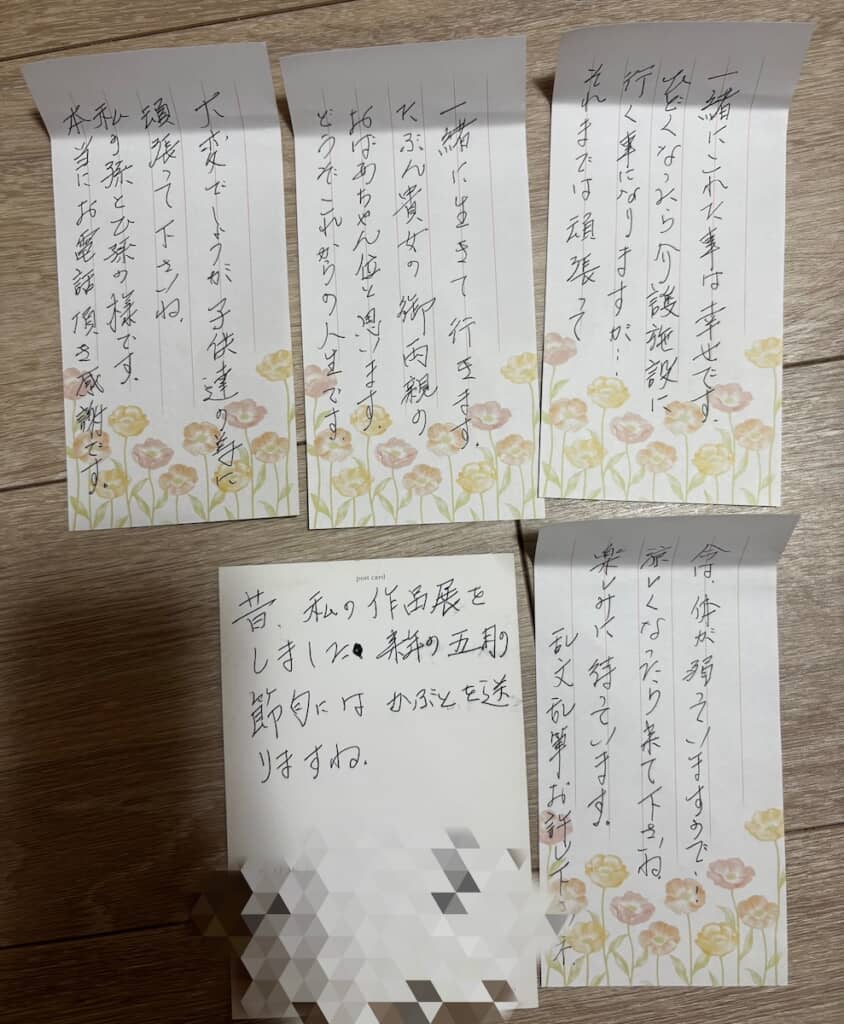 一緒にこれた事は幸せです。
ひどくなったら介護施設に
行く事になりますが…
それまでは頑張って
一緒に生きて行きます。
たぶん貴女の御両親の
おばあちゃん位と思います。
どうぞこれからの人生です。
大変でしょうが子供達の為に
頑張って下さいね。
私の孫とひ孫の様です。
本当にお電話頂き感謝です。
今は、体が弱っていますので…
涼しくなったら来て下さいね
楽しみに待っています。
乱文乱筆お許し下さいネ.
post card
昔、私の作品展を
しました 来年の五月の
節句には かぶとを送
りますね.